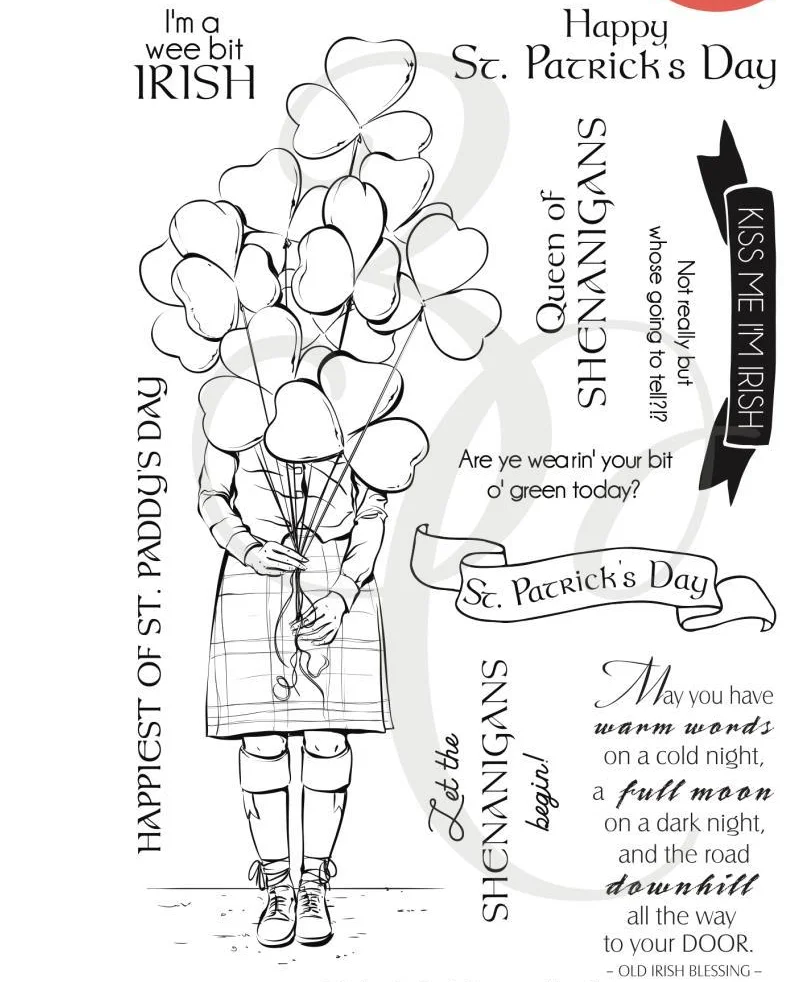 I'm a
wee bit
IRISH
Happy
St. Patrick's Day
Queen of
SHENANIGANS
Not really but
whose going to tell?!?
KISS ME I'M IRISH
HAPPIEST OF ST. PADDY'S DAY
Are ye wearin' your bit
o' green today?
St. Patrick's Day
Let the
SHENANIGANS
begin!
May you have
warm words
on a cold night,
a full moon
on a dark night,
and the road
downhill
all the way
to your DOOR.
– OLD IRISH BLESSING –